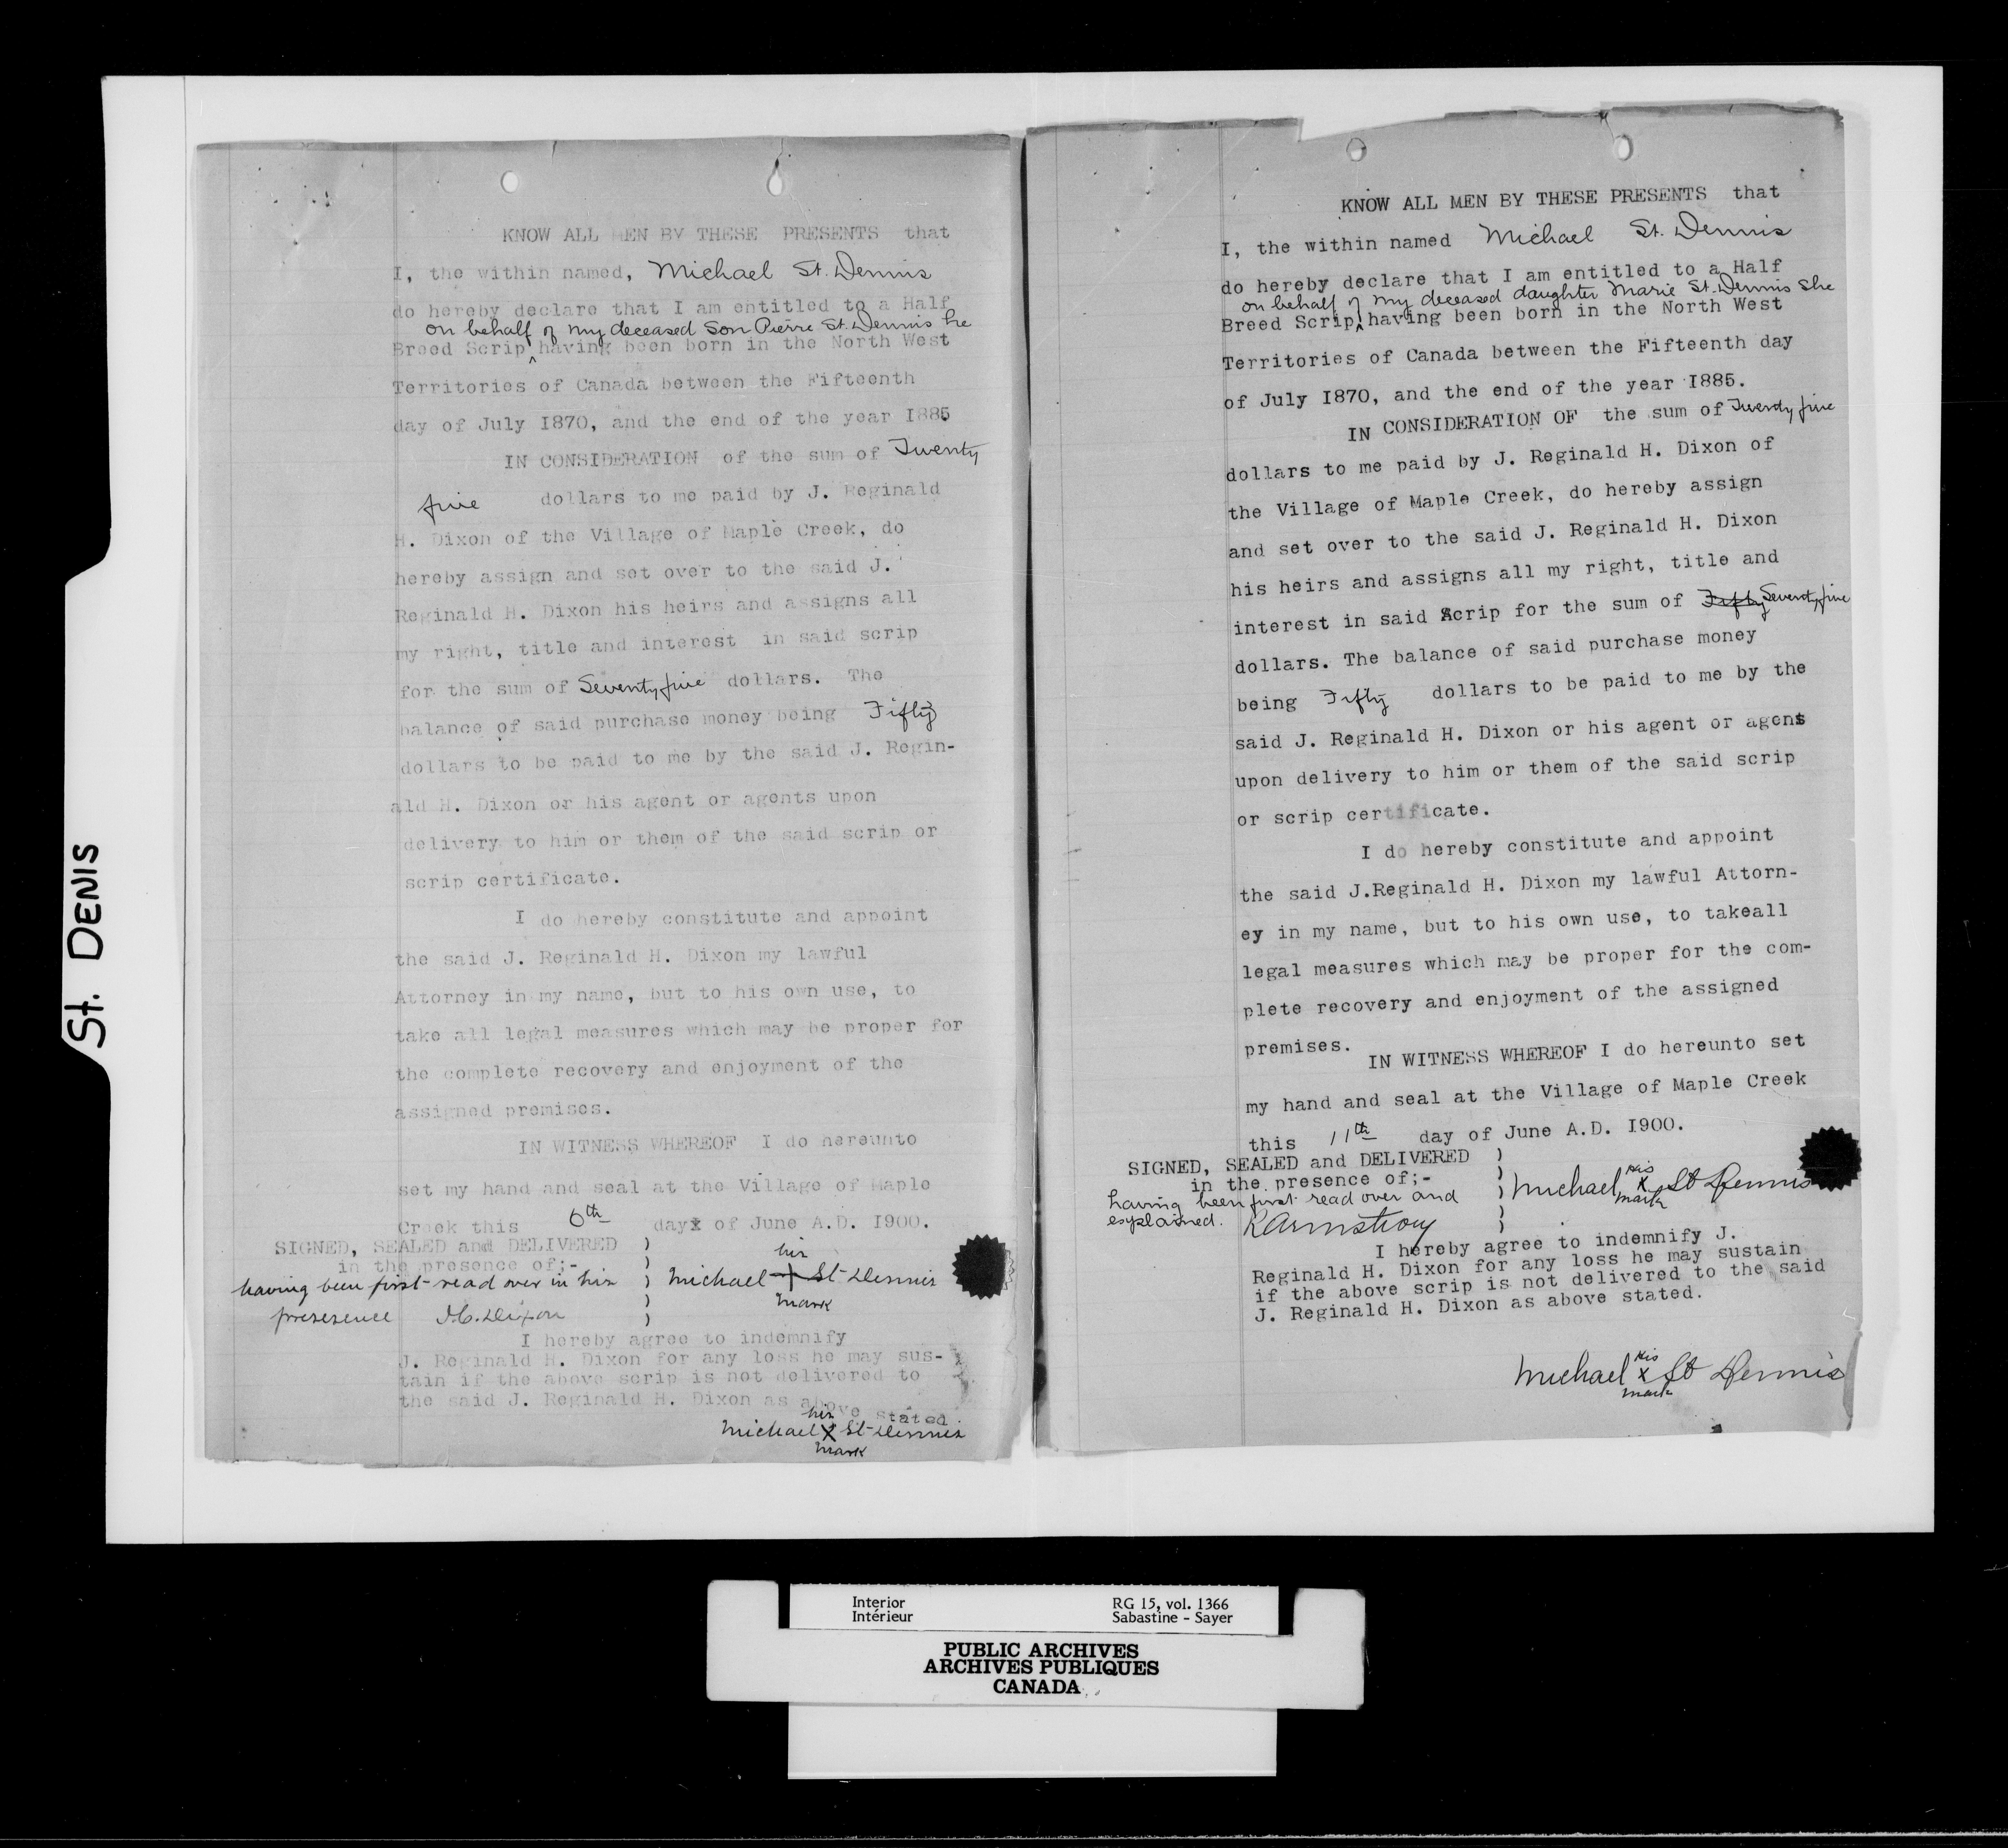 St. DENIS
KNOW ALL MEN BY THESE PRESENTS that
I, the within named, Michael St. Dennis
do hereby declare that I am entitled to a Half
on behalf of my deceased Son Pierre St. Dennis he
Breed Scrip ^ having been born in the North West
Territories of Canada between the Fifteenth
day of July I870, and the end of the year I885
IN CONSIDERATION of the sum of Twenty
five dollars to me paid by J. Reginald
H. Dixon of the Village of Maple Creek, do
hereby assign and set over to the said J.
Reginald H. Dixon his heirs and assigns all
my right, title and interest in said scrip
for the sum of Seventy five dollars. The
balance of said purchase money being Fifty
dollars to be paid to me by the said J. Regin-
ald H. Dixon or his agent or agents upon
delivery to him or them of the said scrip or
scrip certificate.
I do hereby constitute and appoint
the said J. Reginald H. Dixon my lawful
Attorney in my name, but to his own use, to
take all legal measures which may be proper for
the complete recovery and enjoyment of the
assigned premises.
IN WITNESS WHEREOF I do hereunto
set my hand and seal at the Village of Maple
Creek this 6th day of June A.D. I900.
SIGNED, SEALED and DELIVERED )
in the presence of;- )
having been first read over in his ) Michael his + mark St Dennis
presesence J.C. Dixon )
I hereby agree to indemnify
J. Reginald H. Dixon for any loss he may sus-
tain if the above scrip is not delivered to
the said J. Reginald H. Dixon as above stated
Michael his X mark St Dennis
KNOW ALL MEN BY THESE PRESENTS that
I, the within named Michael St. Dennis
do hereby declare that I am entitled to a Half
on behalf of my deceased daughter Marie St. Dennis she
Breed Scrip ^ having been born in the North West
Territories of Canada between the Fifteenth day
of July I870, and the end of the year I885.
IN CONSIDERATION OF the sum of Twenty five
dollars to me paid by J. Reginald H. Dixon of
the Village of Maple Creek, do hereby assign
and set over to the said J. Reginald H. Dixon
his heirs and assigns all my right, title and
interest in said Scrip for the sum of Fifty Seventy five
dollars. The balance of said purchase money
being Fifty dollars to be paid to me by the
said J. Reginald H. Dixon or his agent or agens
upon delivery to him or them of the said scrip
or scrip certificate.
I do hereby constitute and appoint
the said J.Reginald H. Dixon my lawful Attorn-
ey in my name, but to his own use, to takeall
legal measures which may be proper for the com-
plete recovery and enjoyment of the assigned
premises.
IN WITNESS WHEREOF I do hereunto set
my hand and seal at the Village of Maple Creek
this 11th day of June A.D. I900.
SIGNED, SEALED and DELIVERED )
in the presence of;- ) Michael his X mark St Dennis
having been first read over and )
explained. R Armstrong )
I hereby agree to indemnify J.
Reginald H. Dixon for any loss he may sustain
if the above scrip is not delivered to the said
J. Reginald H. Dixon as above stated.
Michael his X mark St Dennis
Interior RG 15, vol. 1366
Intérieur Sabastine - Sayer
PUBLIC ARCHIVES
ARCHIVES PUBLIQUES
CANADA